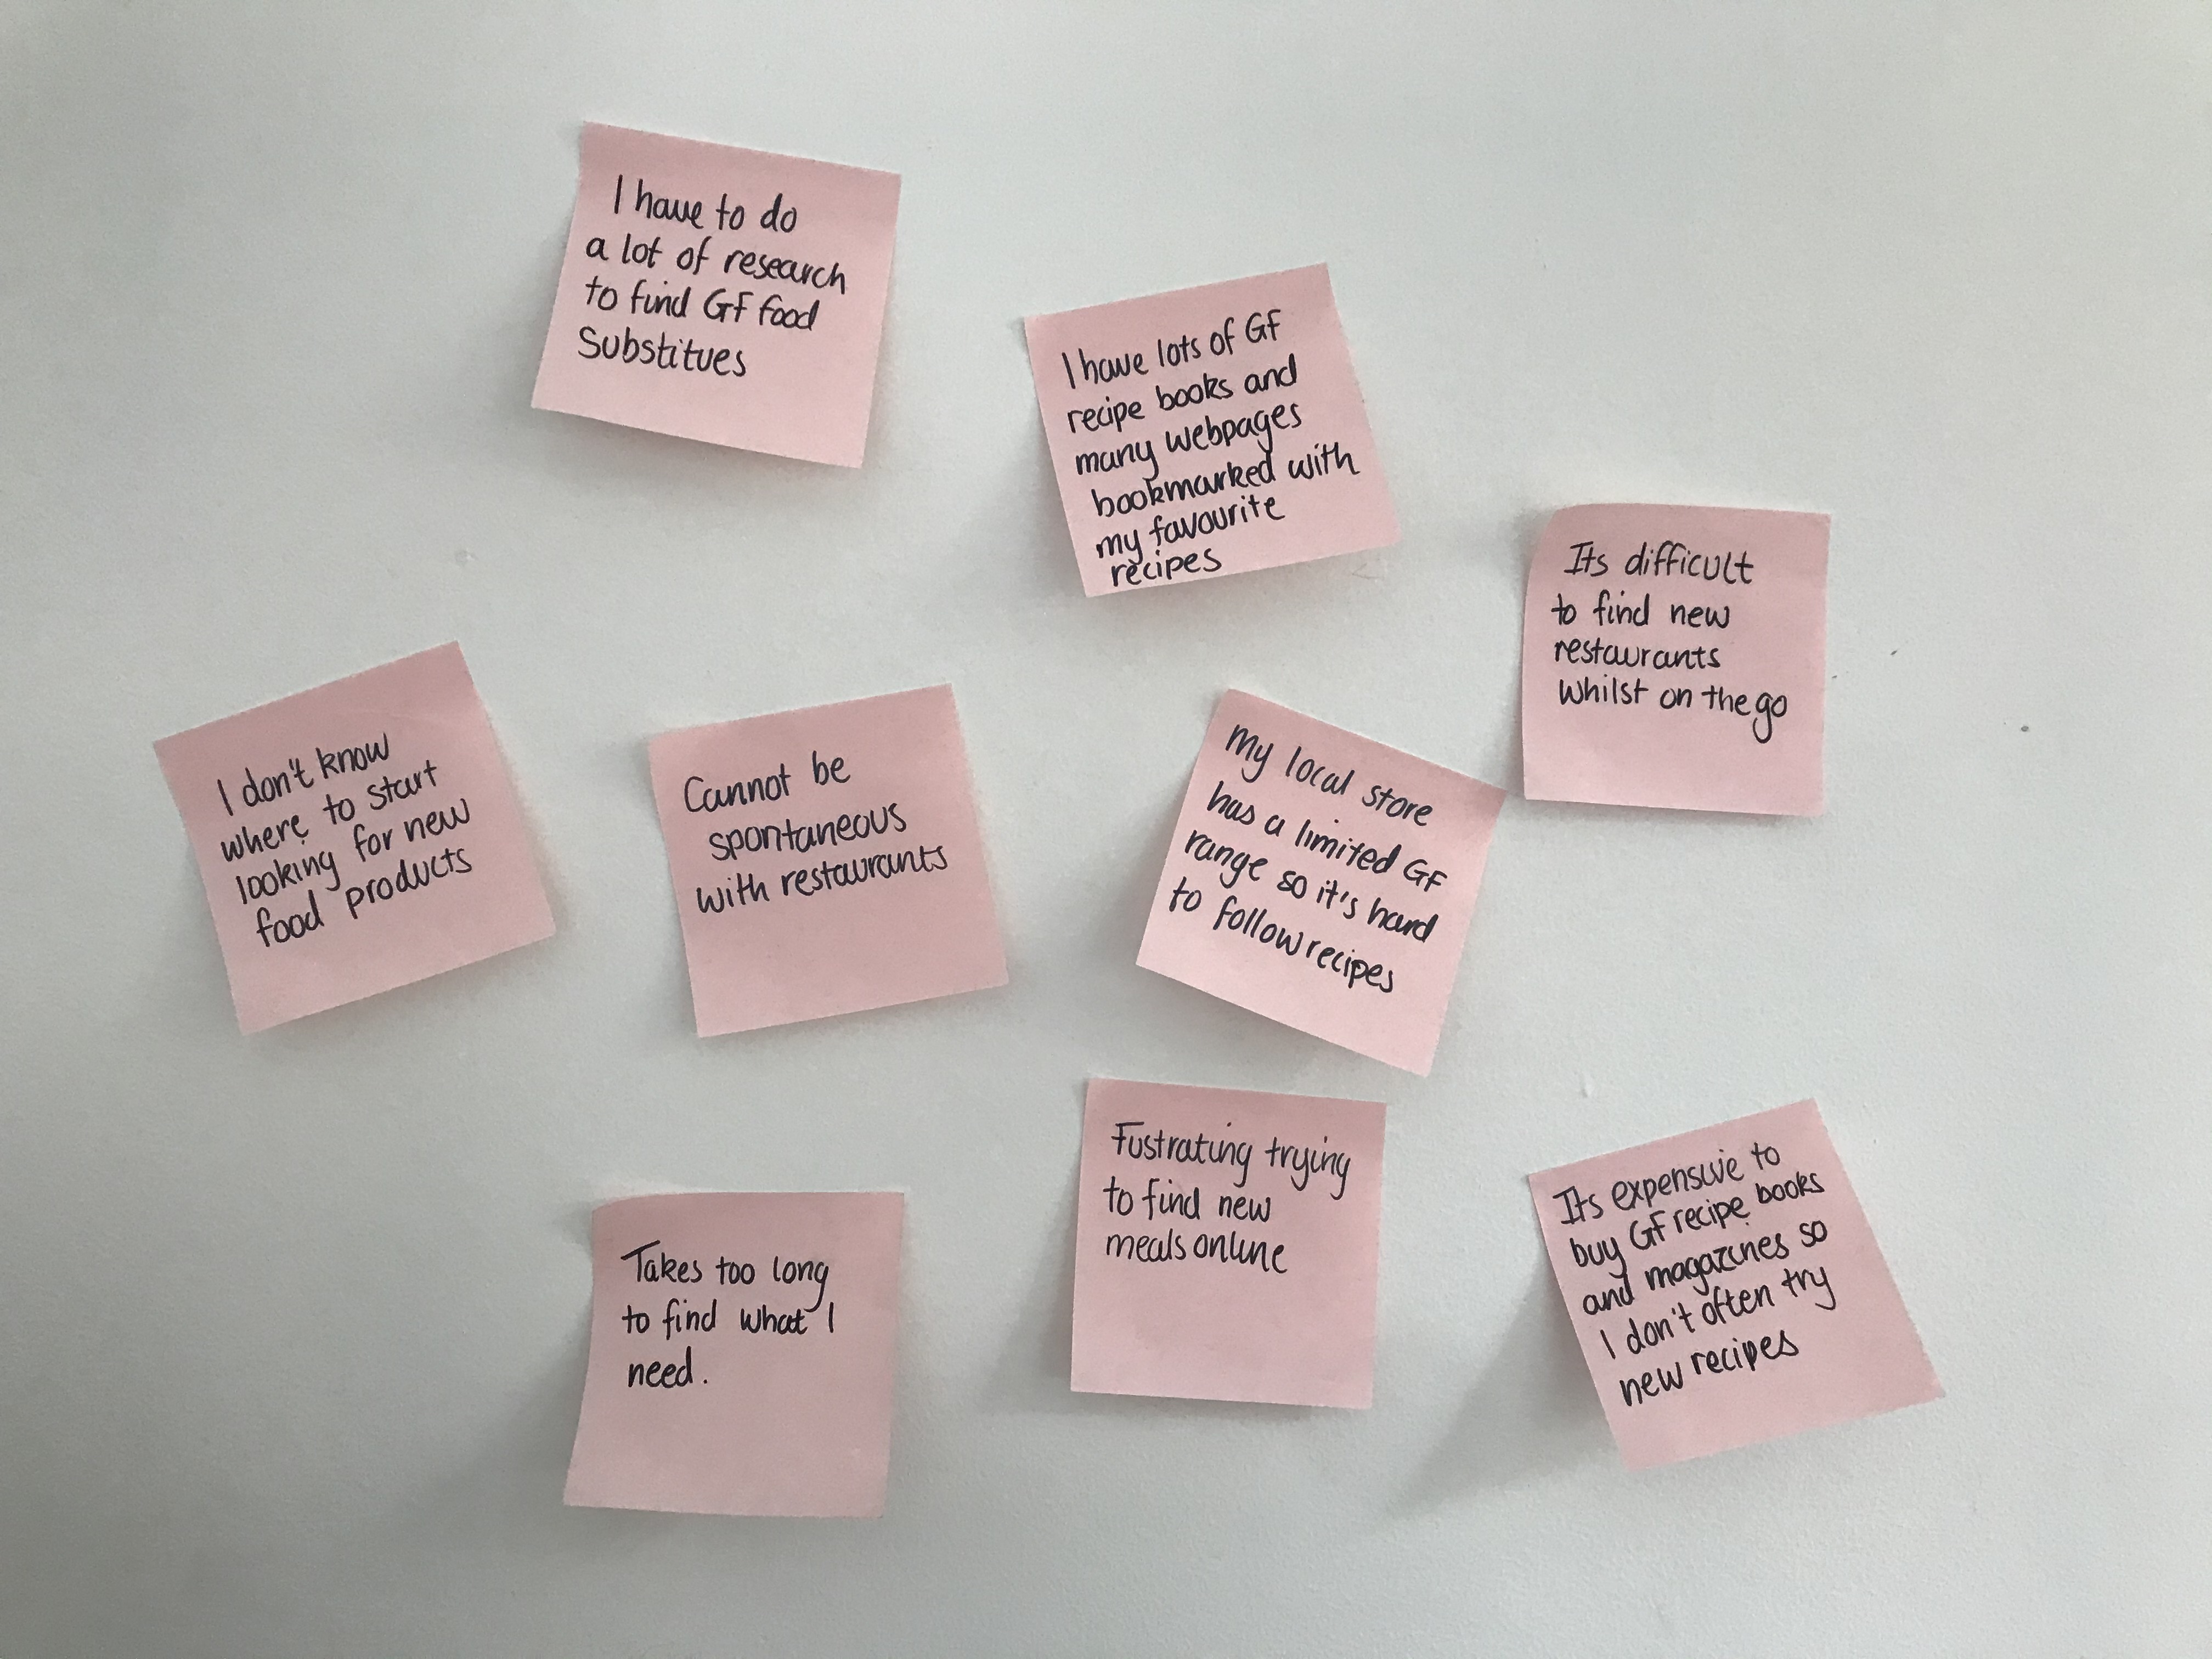 I have to do
a lot of research
to find GF food
Substitues
I have lots of GF
recipe books and
many webpages
bookmarked with
my favourite
recipes
Its difficult
to find new
restaurants
whilst on the go
I don't know
where to start
looking for new
food products
Cannot be
spontaneous
with restaurants
My local store
has a limited GF
range so it's hard
to follow recipes
Takes too long
to find what I
need.
Fustrating trying
to find new
meals online
Its expensive to
buy GF recipe books
and magazines so
I don't often try
new recipes